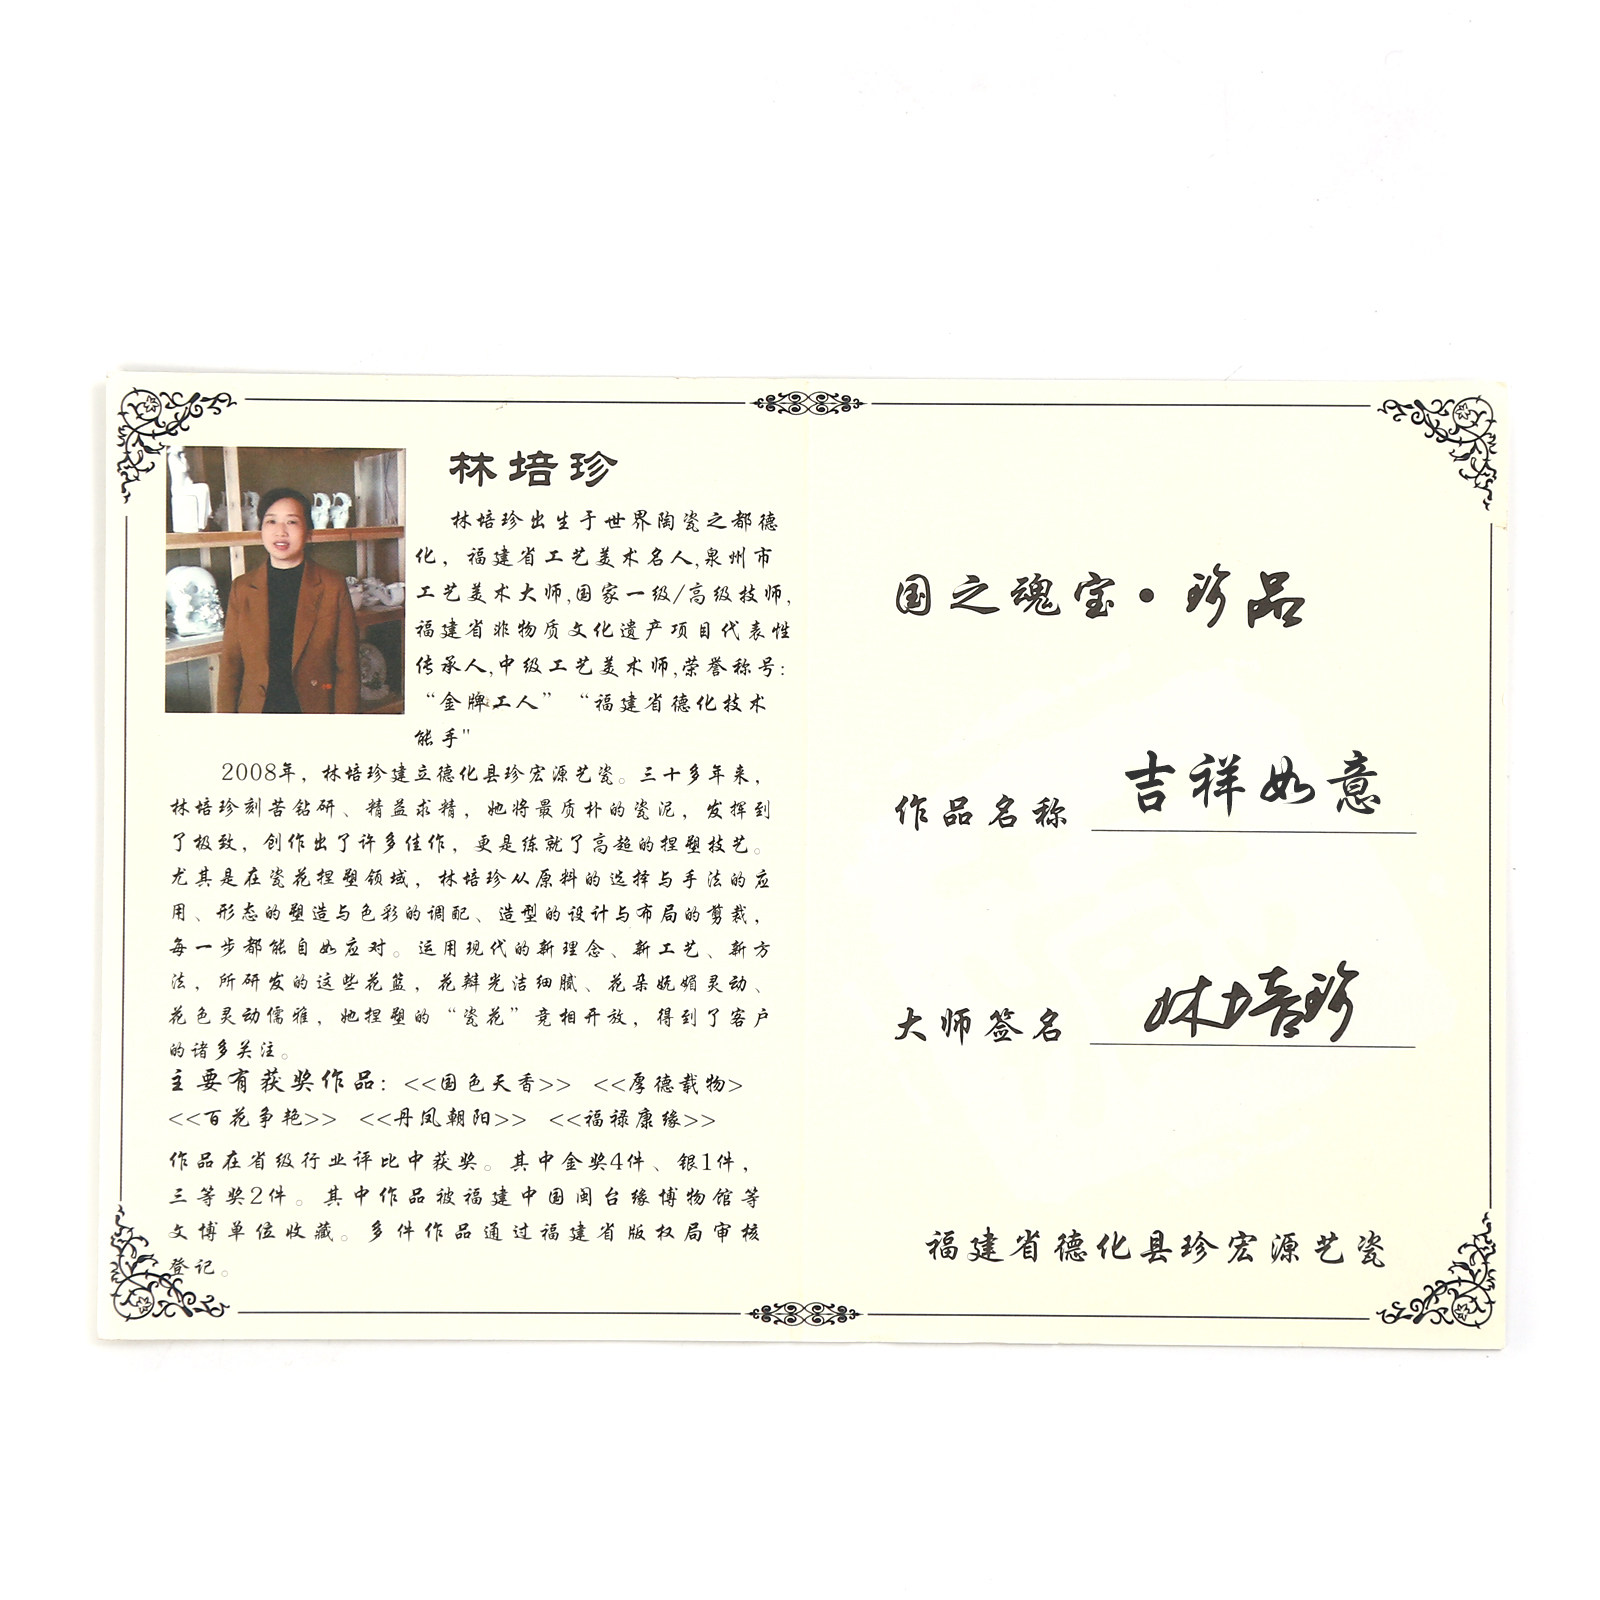 林培珍
林培珍出生于世界陶瓷之都德
化，福建省工艺美术名人,泉州市
工艺美术大师,国家一级/高级技师,
福建省非物质文化遗产项目代表性
传承人,中级工艺美术师,荣誉称号:
“金牌工人” “福建省德化技术
能手"
2008年，林培珍建立德化县珍宏源艺瓷。三十多年来，
林培珍刻苦钻研、精益求精，她将最质朴的瓷泥，发挥到
了极致，创作出了许多佳作，更是练就了高超的捏塑技艺。
尤其是在瓷花捏塑领域，林培珍从原料的选择与手法的应
用、形态的塑造与色彩的调配、造型的设计与布局的剪裁，
每一步都能自如应对。运用现代的新理念、新工艺、新方
法，所研发的这些花篮，花瓣光洁细腻、花朵妩媚灵动、
花色灵动儒雅，她捏塑的“瓷花”竞相开放，得到了客户
的诸多关注。
主要有获奖作品: <<国色天香>> <<厚德载物>
<<百花争艳>> <<丹凤朝阳>> <<福禄康缘>>
作品在省级行业评比中获奖。其中金奖4件、银1件，
三等奖2件。其中作品被福建中国闽台缘博物馆等
文博单位收藏。多件作品通过福建省版权局审核
登记。
国之魂宝·珍品
作品名称 吉祥如意
大师签名 林培珍
福建省德化县珍宏源艺瓷